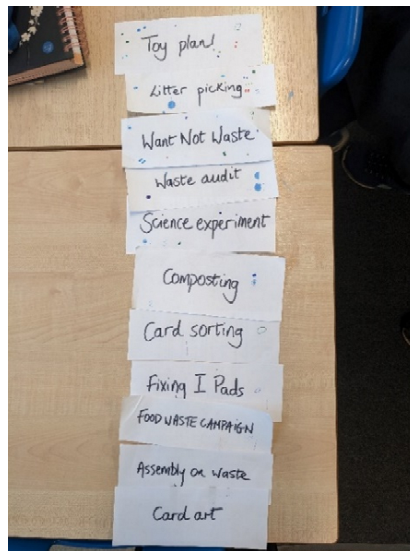 Toy plan!
Litter picking
Want Not Waste
Waste audit
Science experiment
Composting
Card sorting
Fixing I Pads
FOOD WASTE CAMPAIGN
Assembly on waste
Card art